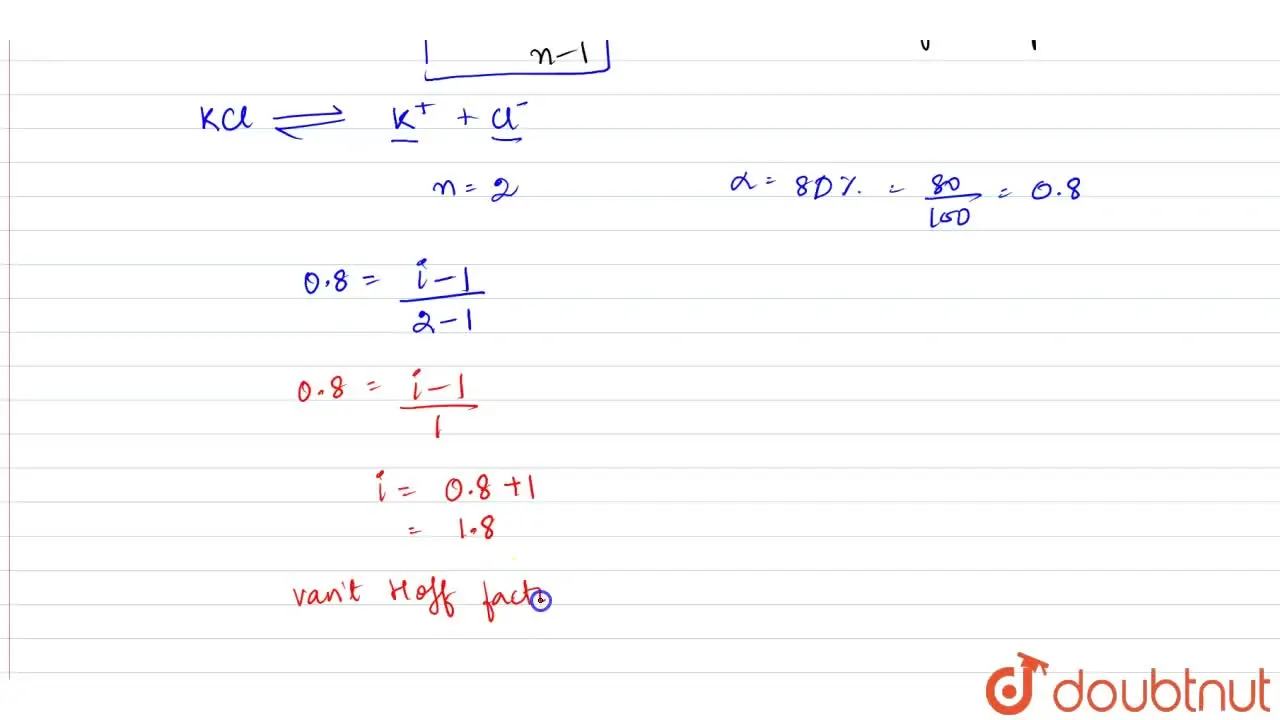 n-1
KCl ⇌ K⁺ + Cl⁻
n = 2
α = 80% = 80/100 = 0.8
0.8 = i-1/2-1
0.8 = i-1/1
i = 0.8+1
= 1.8
van't Hoff fact
doubtnut